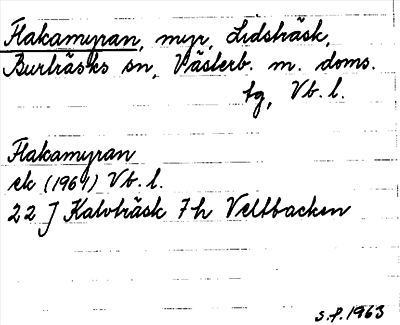 Flakamyran, myr, Lidsträsk,
Burträsks sn, Västerb. m. doms.
tg, Vb. l.
Flakamyran
ek (1964) Vb. l.
22 J Kalvträsk 7h Veltbacken
s.f. 1963